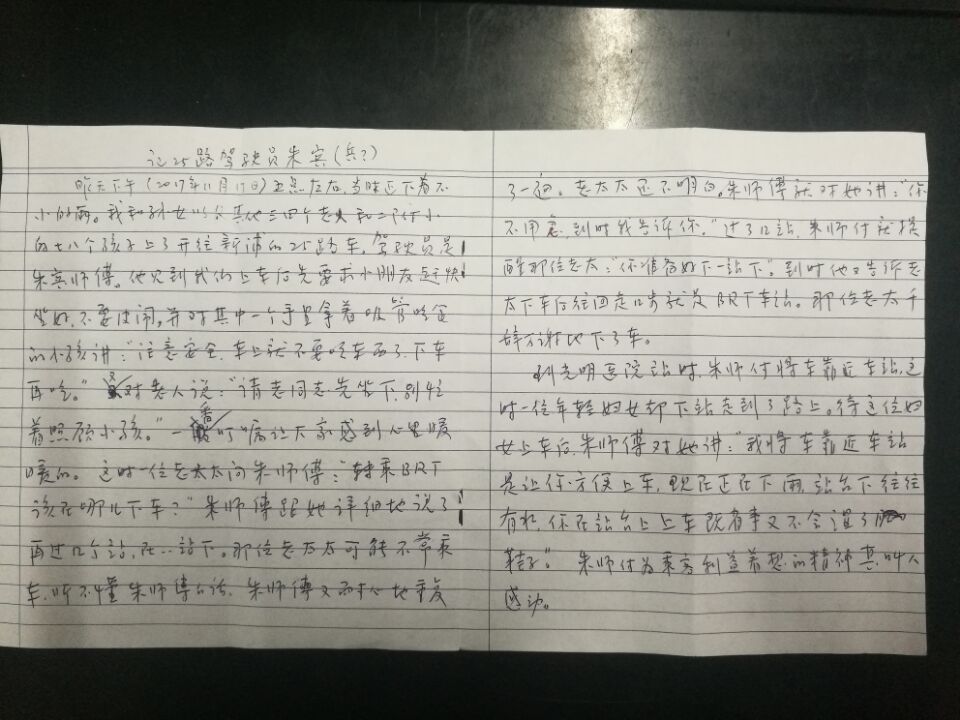 记25路驾驶员朱宾(兵?)
昨天下午(2017年11月17日)五点左右,当时还下着不
小的雨。我和孙女以及其他三四个老人和二个小
的七八个孩子上了开往新浦的25路车,驾驶员是
朱宾师傅。他见到我们上车后先要求小朋友赶快
坐好,不要打闹,并对其中一个手里拿着吸管吃食
的小孩讲:“注意安全,车上就不要吃东西了,下车
再吃。”又对老人说:“请老同志先坐下,别忙
着照顾小孩。”一番叮嘱让大家感到心里暖
暖的。这时一位老太太问朱师傅:“转乘BRT
该在哪儿下车?”朱师傅跟她详细地说了
再过几个站,在…站下。那位老太太可能不常乘
车,听不懂朱师傅的话,朱师傅又耐心地重复
了一遍。老太太还不明白。朱师傅就对她讲:“你
不用急,到时我告诉你。”过了几站,朱师付就提
醒那位老太:“你准备好下一站下”。到时他又告诉老
太下车后往回走几步就是BRT车站。那位老太千
辞万谢地下了车。
到光明医院站时,朱师付将车靠近车站,这
时一位年轻妇女却下站走到了路上。待这位妇
女上车后,朱师傅对她讲:“我将车靠近车站
是让你方便上车,现在正在下雨,站台下往往
有水,你在站台上上车既省事又不会湿了
鞋子”。朱师付为乘客利益着想的精神真叫人
感动。